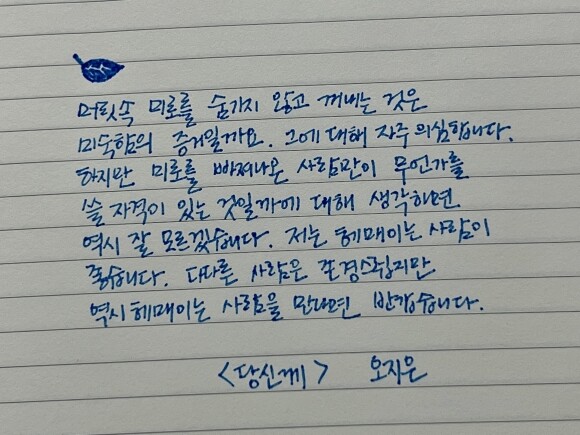 머릿속 미로를 숨기지 않고 꺼내는 것은
미숙함의 증거일까요. 그에 대해 자주 의심합니다.
하지만 미로를 빠져나온 사람만이 무언가를
쓸 자격이 있는 것일까에 대해 생각하면
역시 잘 모르겠습니다. 저는 헤매이는 사람이
좋습니다. 다다른 사람은 존경스럽지만
역시 헤매이는 사람을 만나면 반갑습니다.
<당신께> 오지은